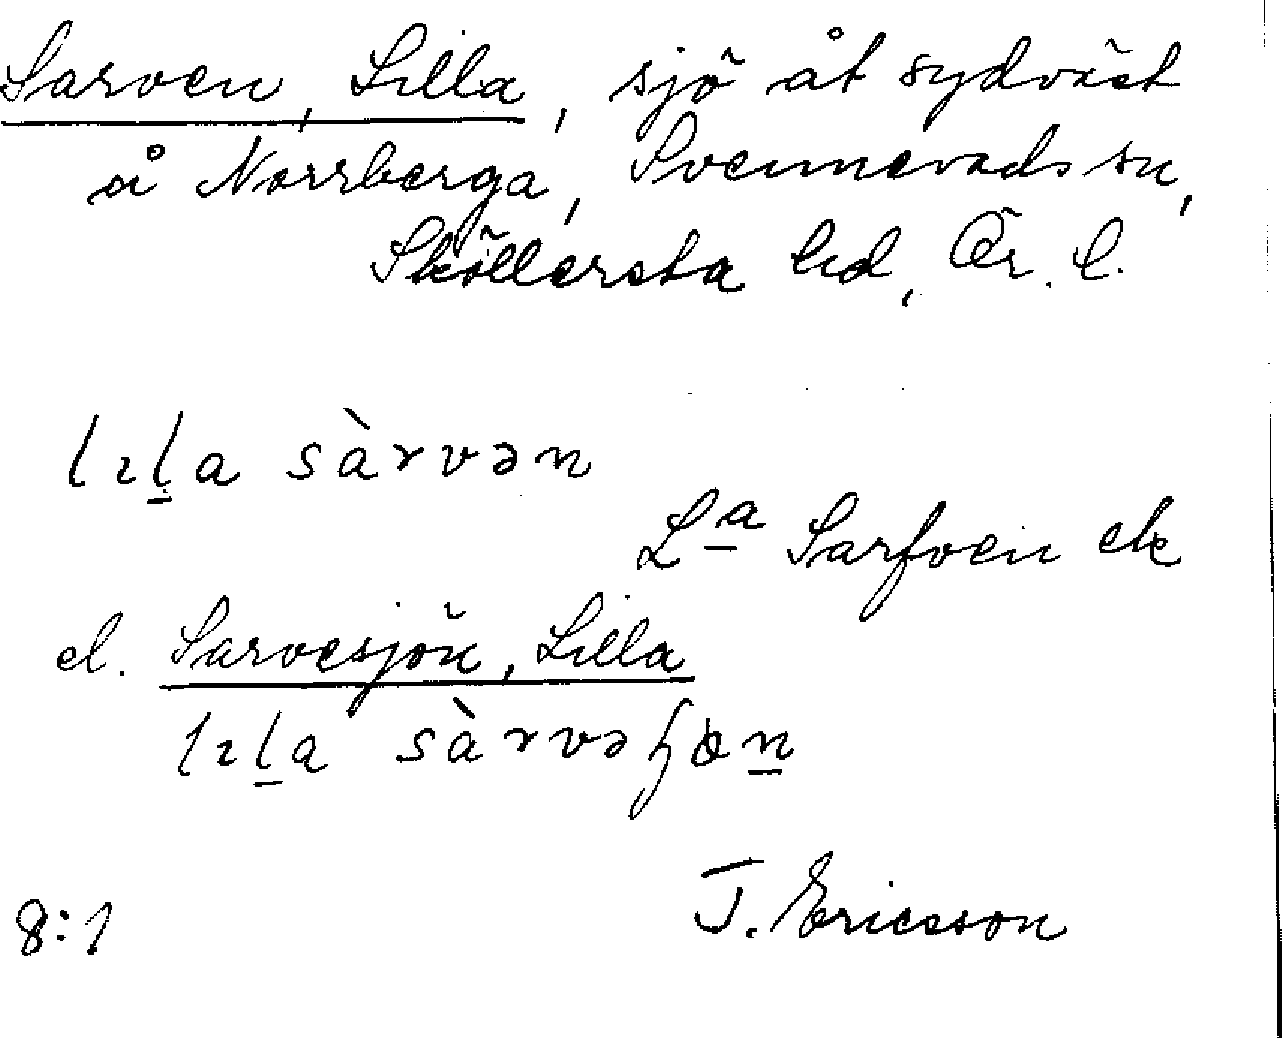 Sarven, Lilla, sjö åt sydväst
å Norrberga, Svennevads sn,
Sköllersta hd, Ör. l.
lɪl̠a sàrvən
Lª Sarfven ek
el. Sarvesjön, Lilla
lɪl̠a sàrvəɧøn̠
8:1 T. Ericsson